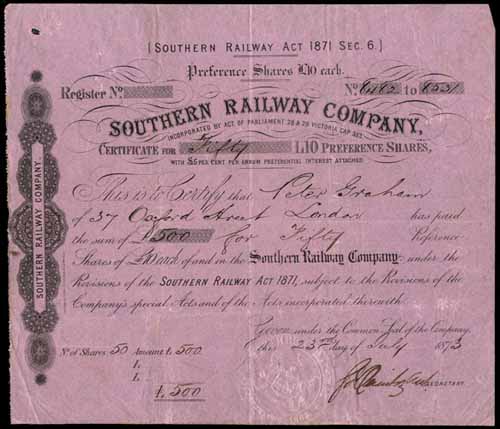 [SOUTHERN RAILWAY ACT 1871 SEC. 6.]
Preference Shares £10 each.
Register No.
No. 8482 to 8531
SOUTHERN RAILWAY COMPANY,
INCORPORATED BY ACT OF PARLIAMENT 28 & 29 VICTORIA CAP
CERTIFICATE FOR Fifty £10 PREFERENCE SHARES,
WITH £5 PER CENT PER ANNUM PREFERENTIAL INTEREST ATTACHED.
This is to Certify that Peter Graham
of 37 Oxford Street London has paid
the sum of £500 for Fifty Preference
Shares of £10 each of and in the Southern Railway Company under the
Provisions of the SOUTHERN RAILWAY ACT 1871, subject to the Provisions of the
Company's special Acts and of the Acts incorporated therewith
Given under the Common Seal of the Company,
this 23rd day of July 1873
No. of Shares 50 Amount £ 500
£
£
£ 500
SECRETARY
SOUTHERN RAILWAY COMPANY.